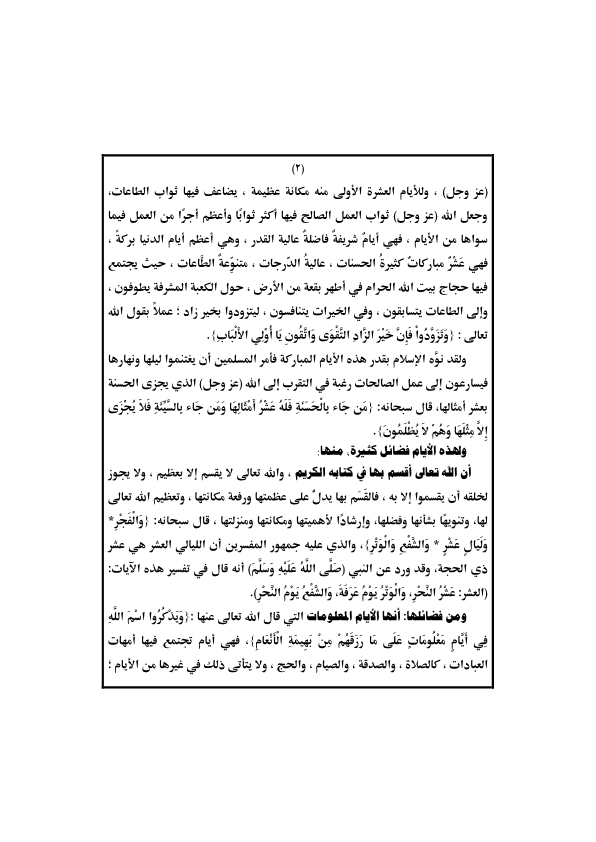 (٢)
(عز وجل) ، وللأيام العشرة الأولى منه مكانة عظيمة ، يضاعف فيها ثواب الطاعات،
وجعل الله (عز وجل) ثواب العمل الصالح فيها أكثر ثوابًا وأعظم أجرًا من العمل فيما
سواها من الأيام ، فهي أيامٌ شريفةٌ فاضلةٌ عالية القدر ، وهي أعظم أيام الدنيا بركةً ،
فهي عَشْرٌ مباركاتٌ كثيرةُ الحسنات ، عاليةُ الدّرجات ، متنوّعةُ الطَّاعات ، حيث يجتمع
فيها حجاج بيت الله الحرام في أطهر بقعة من الأرض ، حول الكعبة المشرفة يطوفون ،
وإلى الطاعات يتسابقون ، وفي الخيرات يتنافسون ، ليتزودوا بخير زاد ؛ عملاً بقول الله
تعالى : {وَتَزَوَّدُواْ فَإِنَّ خَيْرَ الزَّادِ التَّقْوَى وَاتَّقُونِ يَا أُوْلِي الأَلْبَابِ}.
ولقد نوَّه الإسلام بقدر هذه الأيام المباركة فأمر المسلمين أن يغتنموا ليلها ونهارها
فيسارعون إلى عمل الصالحات رغبة في التقرب إلى الله (عز وجل) الذي يجزى الحسنة
بعشر أمثالها، قال سبحانه: {مَن جَاء بِالْحَسَنَةِ فَلَهُ عَشْرُ أَمْثَالِهَا وَمَن جَاء بِالسَّيِّئَةِ فَلاَ يُجْزَى
إِلاَّ مِثْلَهَا وَهُمْ لاَ يُظْلَمُونَ}.
ولهذه الأيام فضائل كثيرة، منها:
أن الله تعالى أقسم بها في كتابه الكريم ، والله تعالى لا يقسم إلا بعظيم ، ولا يجوز
لخلقه أن يقسموا إلا به ، فالقَسَم بها يدلّ على عظمتها ورفعة مكانتها ، وتعظيم الله تعالى
لها، وتنويهًا بشأنها وفضلها، وإرشادًا لأهميتها ومكانتها ومنزلتها ، قال سبحانه: {وَالْفَجْرِ*
وَلَيَالٍ عَشْرٍ * وَالشَّفْعِ وَالْوَتْرِ}، والذي عليه جمهور المفسرين أن الليالي العشر هي عشر
ذي الحجة، وقد ورد عن النبي (صَلَّى اللَّهُ عَلَيْهِ وَسَلَّمَ) أنه قال في تفسير هذه الآيات:
(العشر: عَشْرُ النَّحْرِ، وَالْوَتْرُ يَوْمُ عَرَفَةَ، وَالشَّفْعُ يَوْمُ النَّحْرِ).
ومن فضائلها: أنها الأيام المعلومات التي قال الله تعالى عنها :{وَيَذْكُرُوا اسْمَ اللَّهِ
فِي أَيَّامٍ مَعْلُومَاتٍ عَلَى مَا رَزَقَهُمْ مِنْ بَهِيمَةِ الْأَنْعَامِ}، فهي أيام تجتمع فيها أمهات
العبادات ، كالصلاة ، والصدقة ، والصيام ، والحج ، ولا يتأتى ذلك في غيرها من الأيام ؛